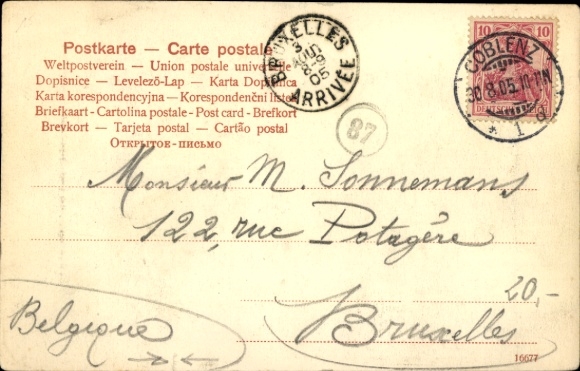 Postkarte — Carte postale
Weltpostverein — Union postale universelle
Dopisnice - Levelező-Lap - Karta Dopisnica
Karta korespondencyjna - Korespondenční listek
Briefkaart - Cartolina postale - Post card - Brefkort
Brevkort - Tarjeta postal - Cartão postal
Открытое-письмо
BRUXELLES
ARRIVÉE
05
87
10
10
COBLENZ
30.8.05.10-11N
* 1 d
Monsieur M. Sonnemans
122, rue Potagère
20,-
Belgique
Bruxelles
16677